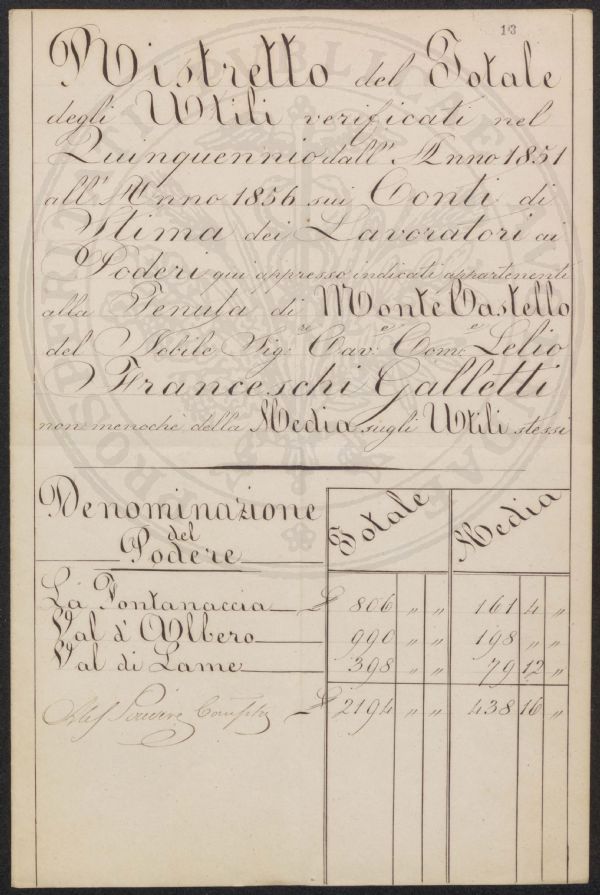 13
Ristretto del Totale
degli Utili verificati nel
Quinquennio dall' Anno 1851
all' Anno 1856 sui Conti di
Stima dei Lavoratori ai
Poderi qui appresso indicati appartenenti
alla Tenuta di Monte Castello
del Nobile Sig.re Cav.e Com.e Lelio
Franceschi Galletti
non menochè della Media sugli Utili stessi
Denominazione del Podere Totale Media
La Fontanaccia £ 806 „ „ 161 4 „
Val d' Albero 990 „ „ 198 „
Val di Lame 398 „ „ 79 12 „
£ 2194 „ „ 438 16 „